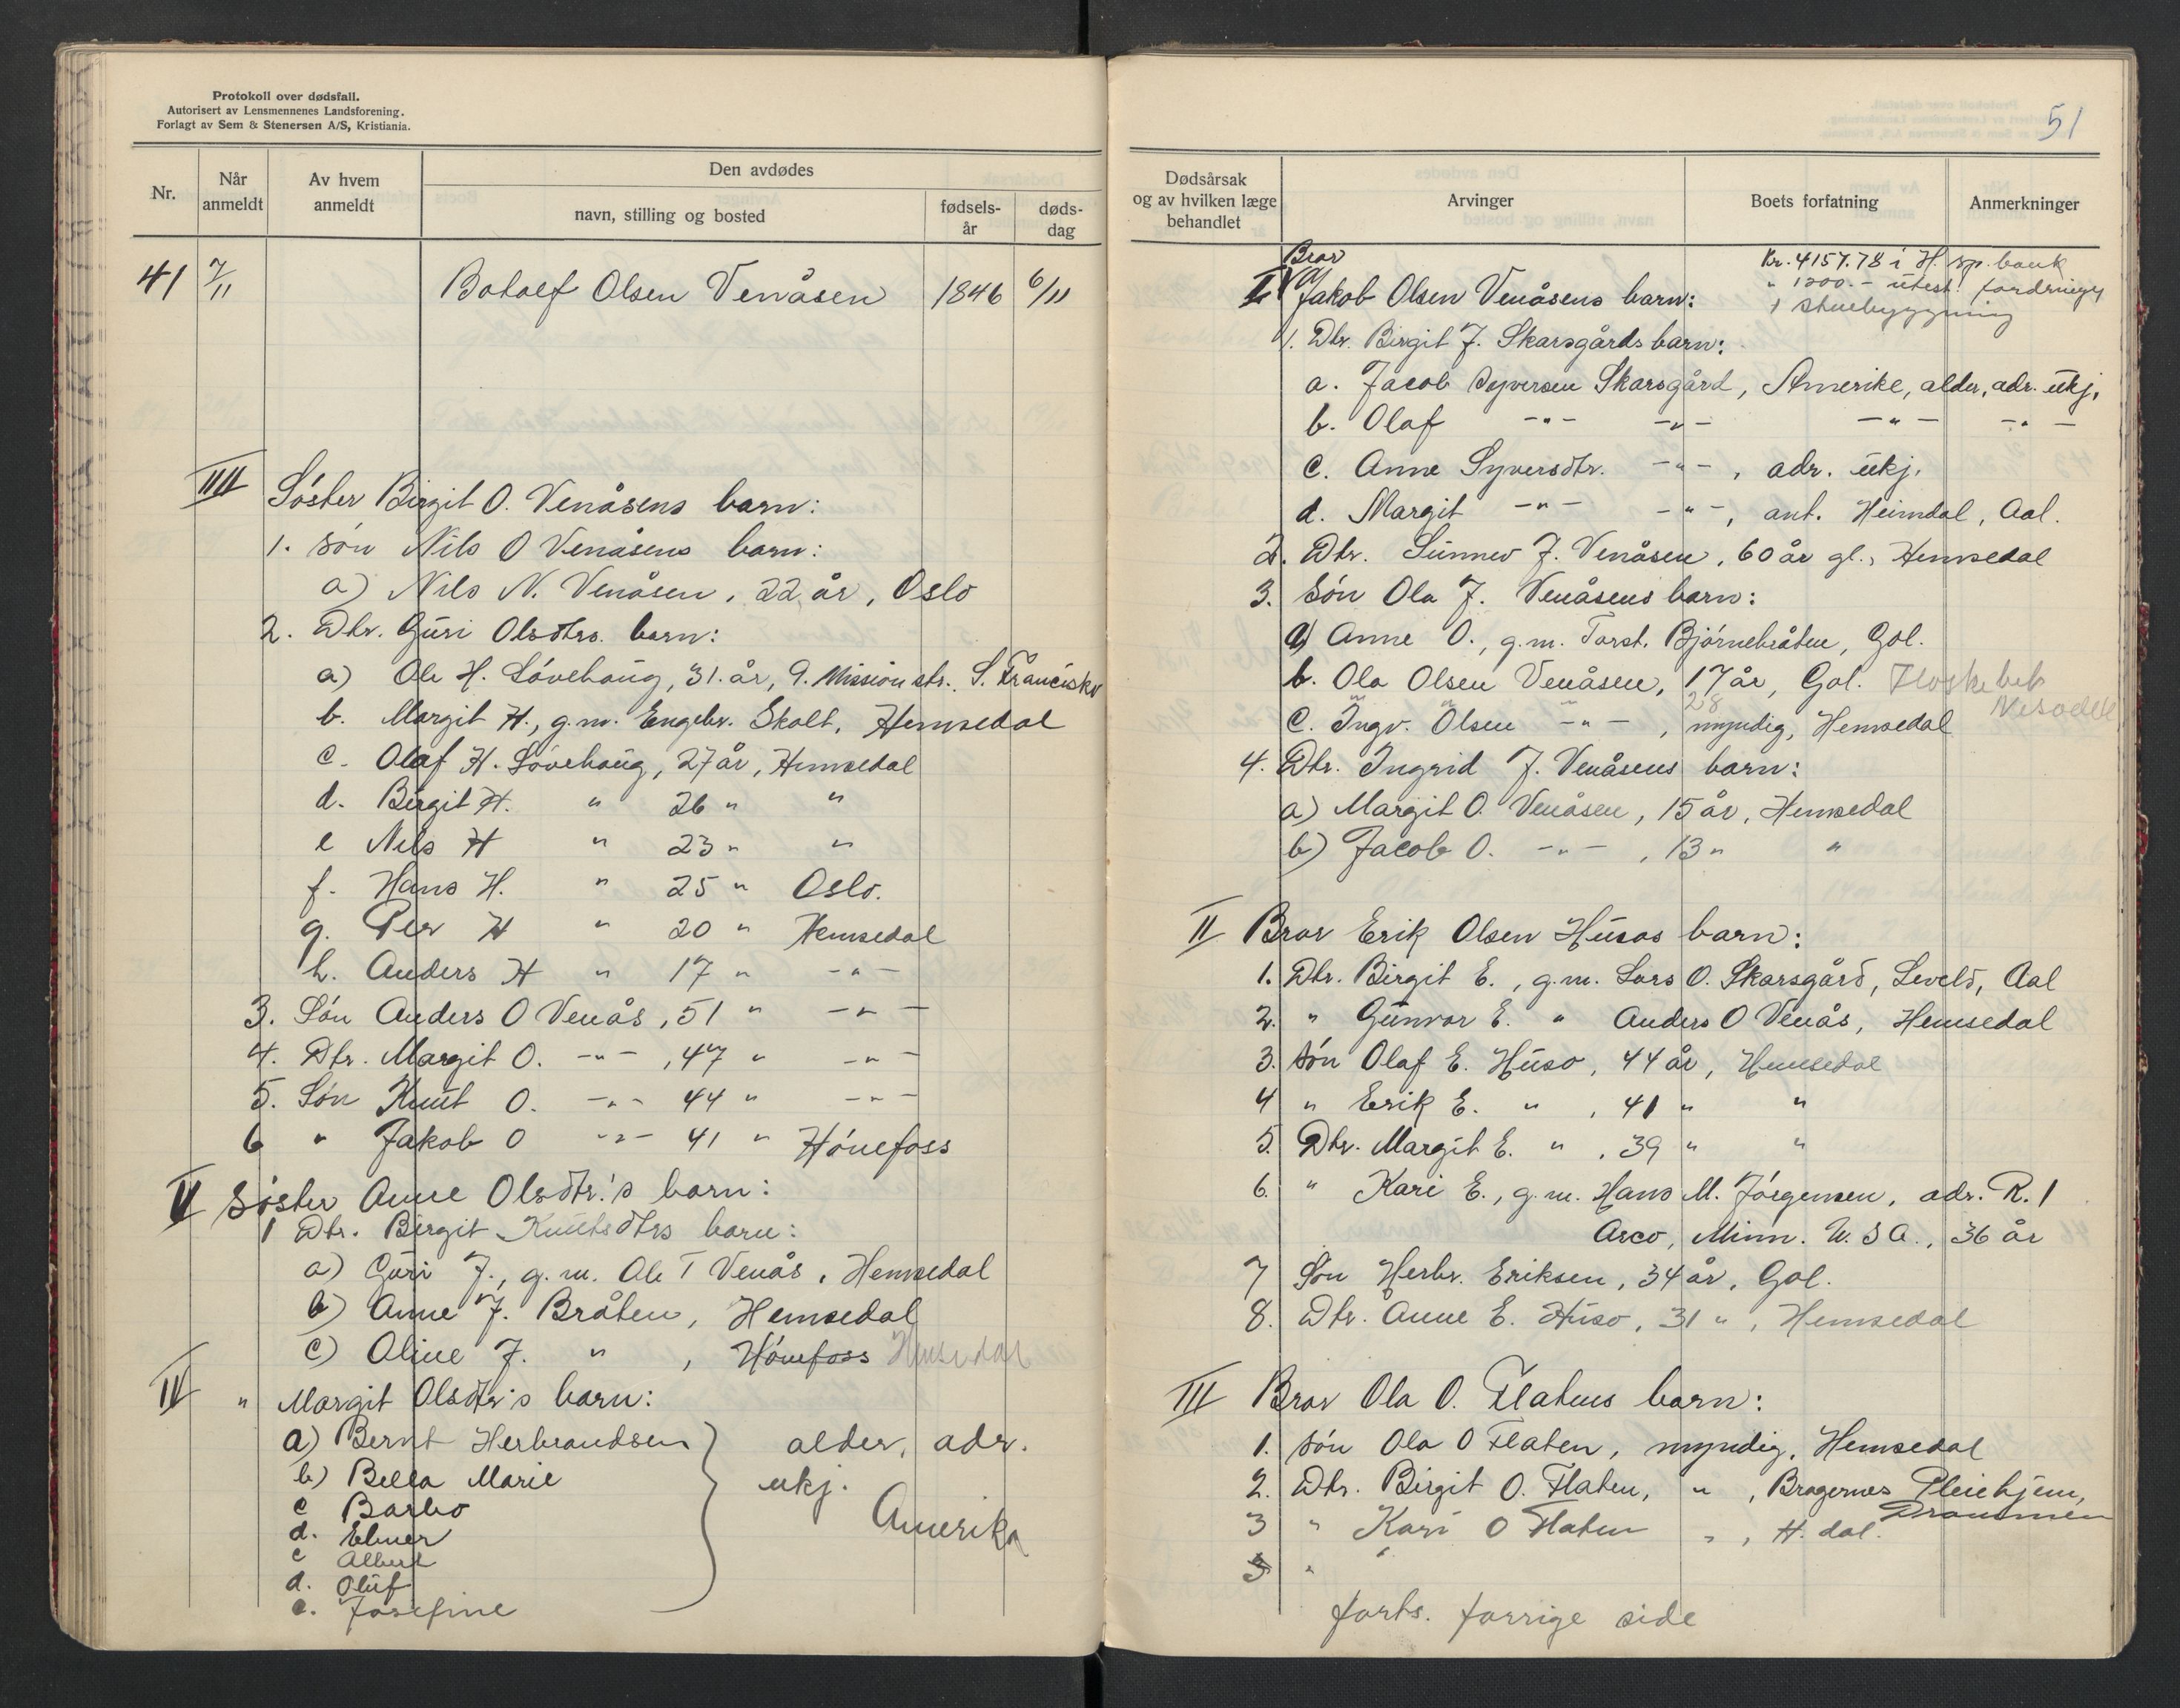 Protokoll over dødsfall.
Autorisert av Lensmennenes Landsforening.
Forlagt av Sem & Stenersen A/S, Kristiania.
Nr.
Når anmeldt
Av hvem anmeldt
Den avdødes
navn, stilling og bosted
fødsels-år
døds-dag
41 7/11 Botolf Olsen Venåsen 1846 6/11
IIII Søster Birgit O. Venåsens barn:
1. Søn Nils O Venåsens barn:
a) Nils N. Venåsen, 22 år, Oslo
2. Dtr. Guri Olsdtrs. barn:
a) Ole H. Løvehaug, 31. år, 9. Mission str. S. Francisko
b. Margit H., g.m. Engebr. Skolt, Hemsedal
c. Olaf H. Løvehaug, 27 år, Hemsedal
d. Birgit H. " 26 " "
e Nils H " 23 " "
f. Hans H. " 25 " Oslo.
g. Per H " 20 " Hemsedal
h. Anders H " 17 " -"-
3. Søn Anders O Venås, 51 " -"-
4. Dtr. Margit O. -"-, 47 " -"-
5. Søn Knut O. -"- 44 " -"-
6 " Jakob O -"- 41 " Hønefoss
V Søster Anne Olsdtr.'s barn:
1 Dtr. Birgit Knutsdtrs barn:
a) Guri J., g.m. Ole T Venås, Hemsedal
b) Anne J. Bråten, Hemsedal
c) Oline J. " , Hønefoss Hemsedal
IV " Margit Olsdtr's barn:
a) Bernt Herbrandsen } alder, adr.
b) Bella Marie ukj.
c Barbo Amerika
d. Elmer
c Albert
d. Oluf
e. Josefine
51
Dødsårsak og av hvilken læge behandlet
Arvinger
Boets forfatning
Anmerkninger
Bror
Kr. 4157.78 i H. sp. bank
I Jakob Olsen Venåsens barn:
" 1200.- utest. fordringer
1 stuebyggning
1. Dtr. Birgit J. Skarsgårds barn:
a. Jacob Syversen Skarsgård, Amerike, alder, adr. ukj.
b. Olaf -"- -"- -"- -"-
c. Anne Syversdtr. -"-, adr. ukj.
d. Margit -"- -"-, ant. Heimdal, Aal.
2. Dtr. Sunnev J. Venåsen, 60 år gl., Hemsedal
3. Søn Ola J. Venåsens barn:
a) Anne O., g.m. Torst. Bjørnebråten, Gol.
b. Ola Olsen Venåsen, 17 år, Gol.
28
c. Ingv. Olsen -"-, myndig, Hemsedal
4. Dtr. Ingrid J. Venåsens barn:
a) Margit O. Venåsen, 15 år, Hemsedal
b) Jacob O. -"-, 13 " "
II Bror Erik Olsen Husos barn:
1. Dtr. Birgit E., g.m. Lars O. Skarsgård, Leveld, Aal
2. " Gunvor E. " Anders O Venås, Hemsedal
3. Søn Olaf E. Huso, 44 år, Hemsedal
4 " Erik E. " , 41 " "
5. Dtr. Margit E. " , 39 " "
6. " Kari E., g.m. Hans M. Jørgensen, adr. R. 1
Asco, Minn. U.S.A., 36 år
7 Søn Herbr. Eriksen, 34 år, Gol.
8. Dtr. Anne E. Huso, 31 " , Hemsedal
III Bror Ola O. Flatens barn:
1. Søn Ola O Flaten, myndig, Hemsedal
2. Dtr. Birgit O. Flaten, " , Bragernes Pleiehjem,
Drammen
3 " Kari O Flaten " , H.dal.
3 "
forts. forrige side